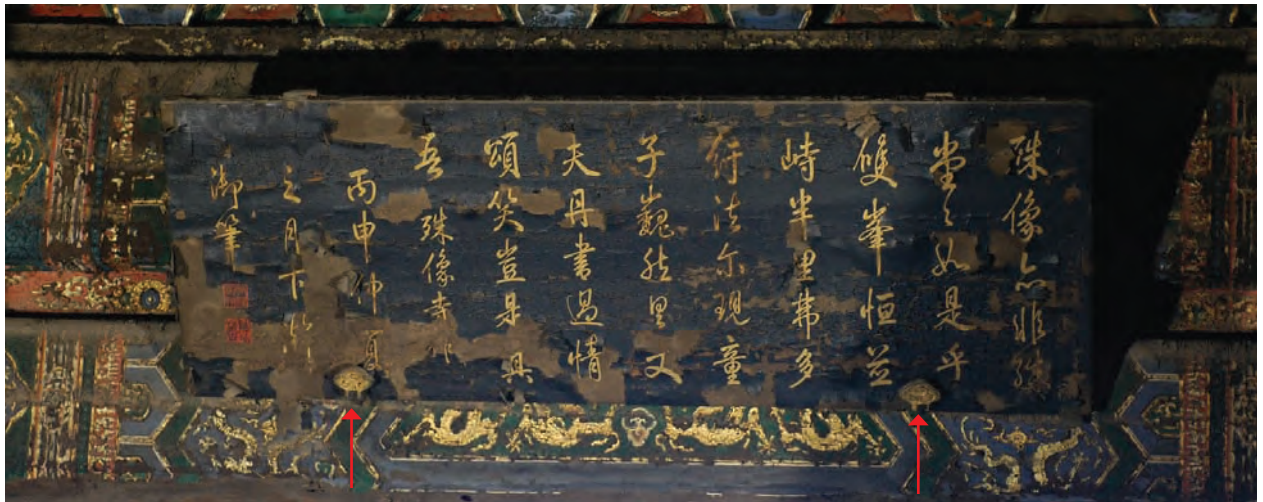 殊像亦非殊
堂々如是乎
雙峯恒並
峙半里弗多
紆法尔現童
子巍然具丈
夫丹書過情
頌笑豈是真
吾 殊像寺作
丙申仲夏
之月下澣
御筆